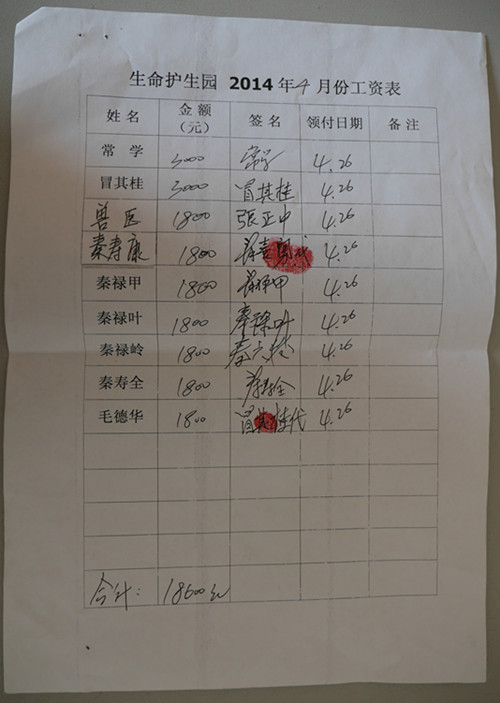 生命护生园 2014年4月份工资表
姓名 金额（元） 签名 领付日期 备注
常学 3000 常学 4.26
冒其桂 3000 冒其桂 4.26
兽医 1800 張正中 4.26
秦寿康 1800 4.26
秦禄甲 1800 秦禄甲 4.26
秦禄叶 1800 秦禄叶 4.26
秦禄岭 1800 秦六岭 4.26
秦寿全 1800 秦寿全 4.26
毛德华 1800 冒其桂代 4.26
合计： 18600元